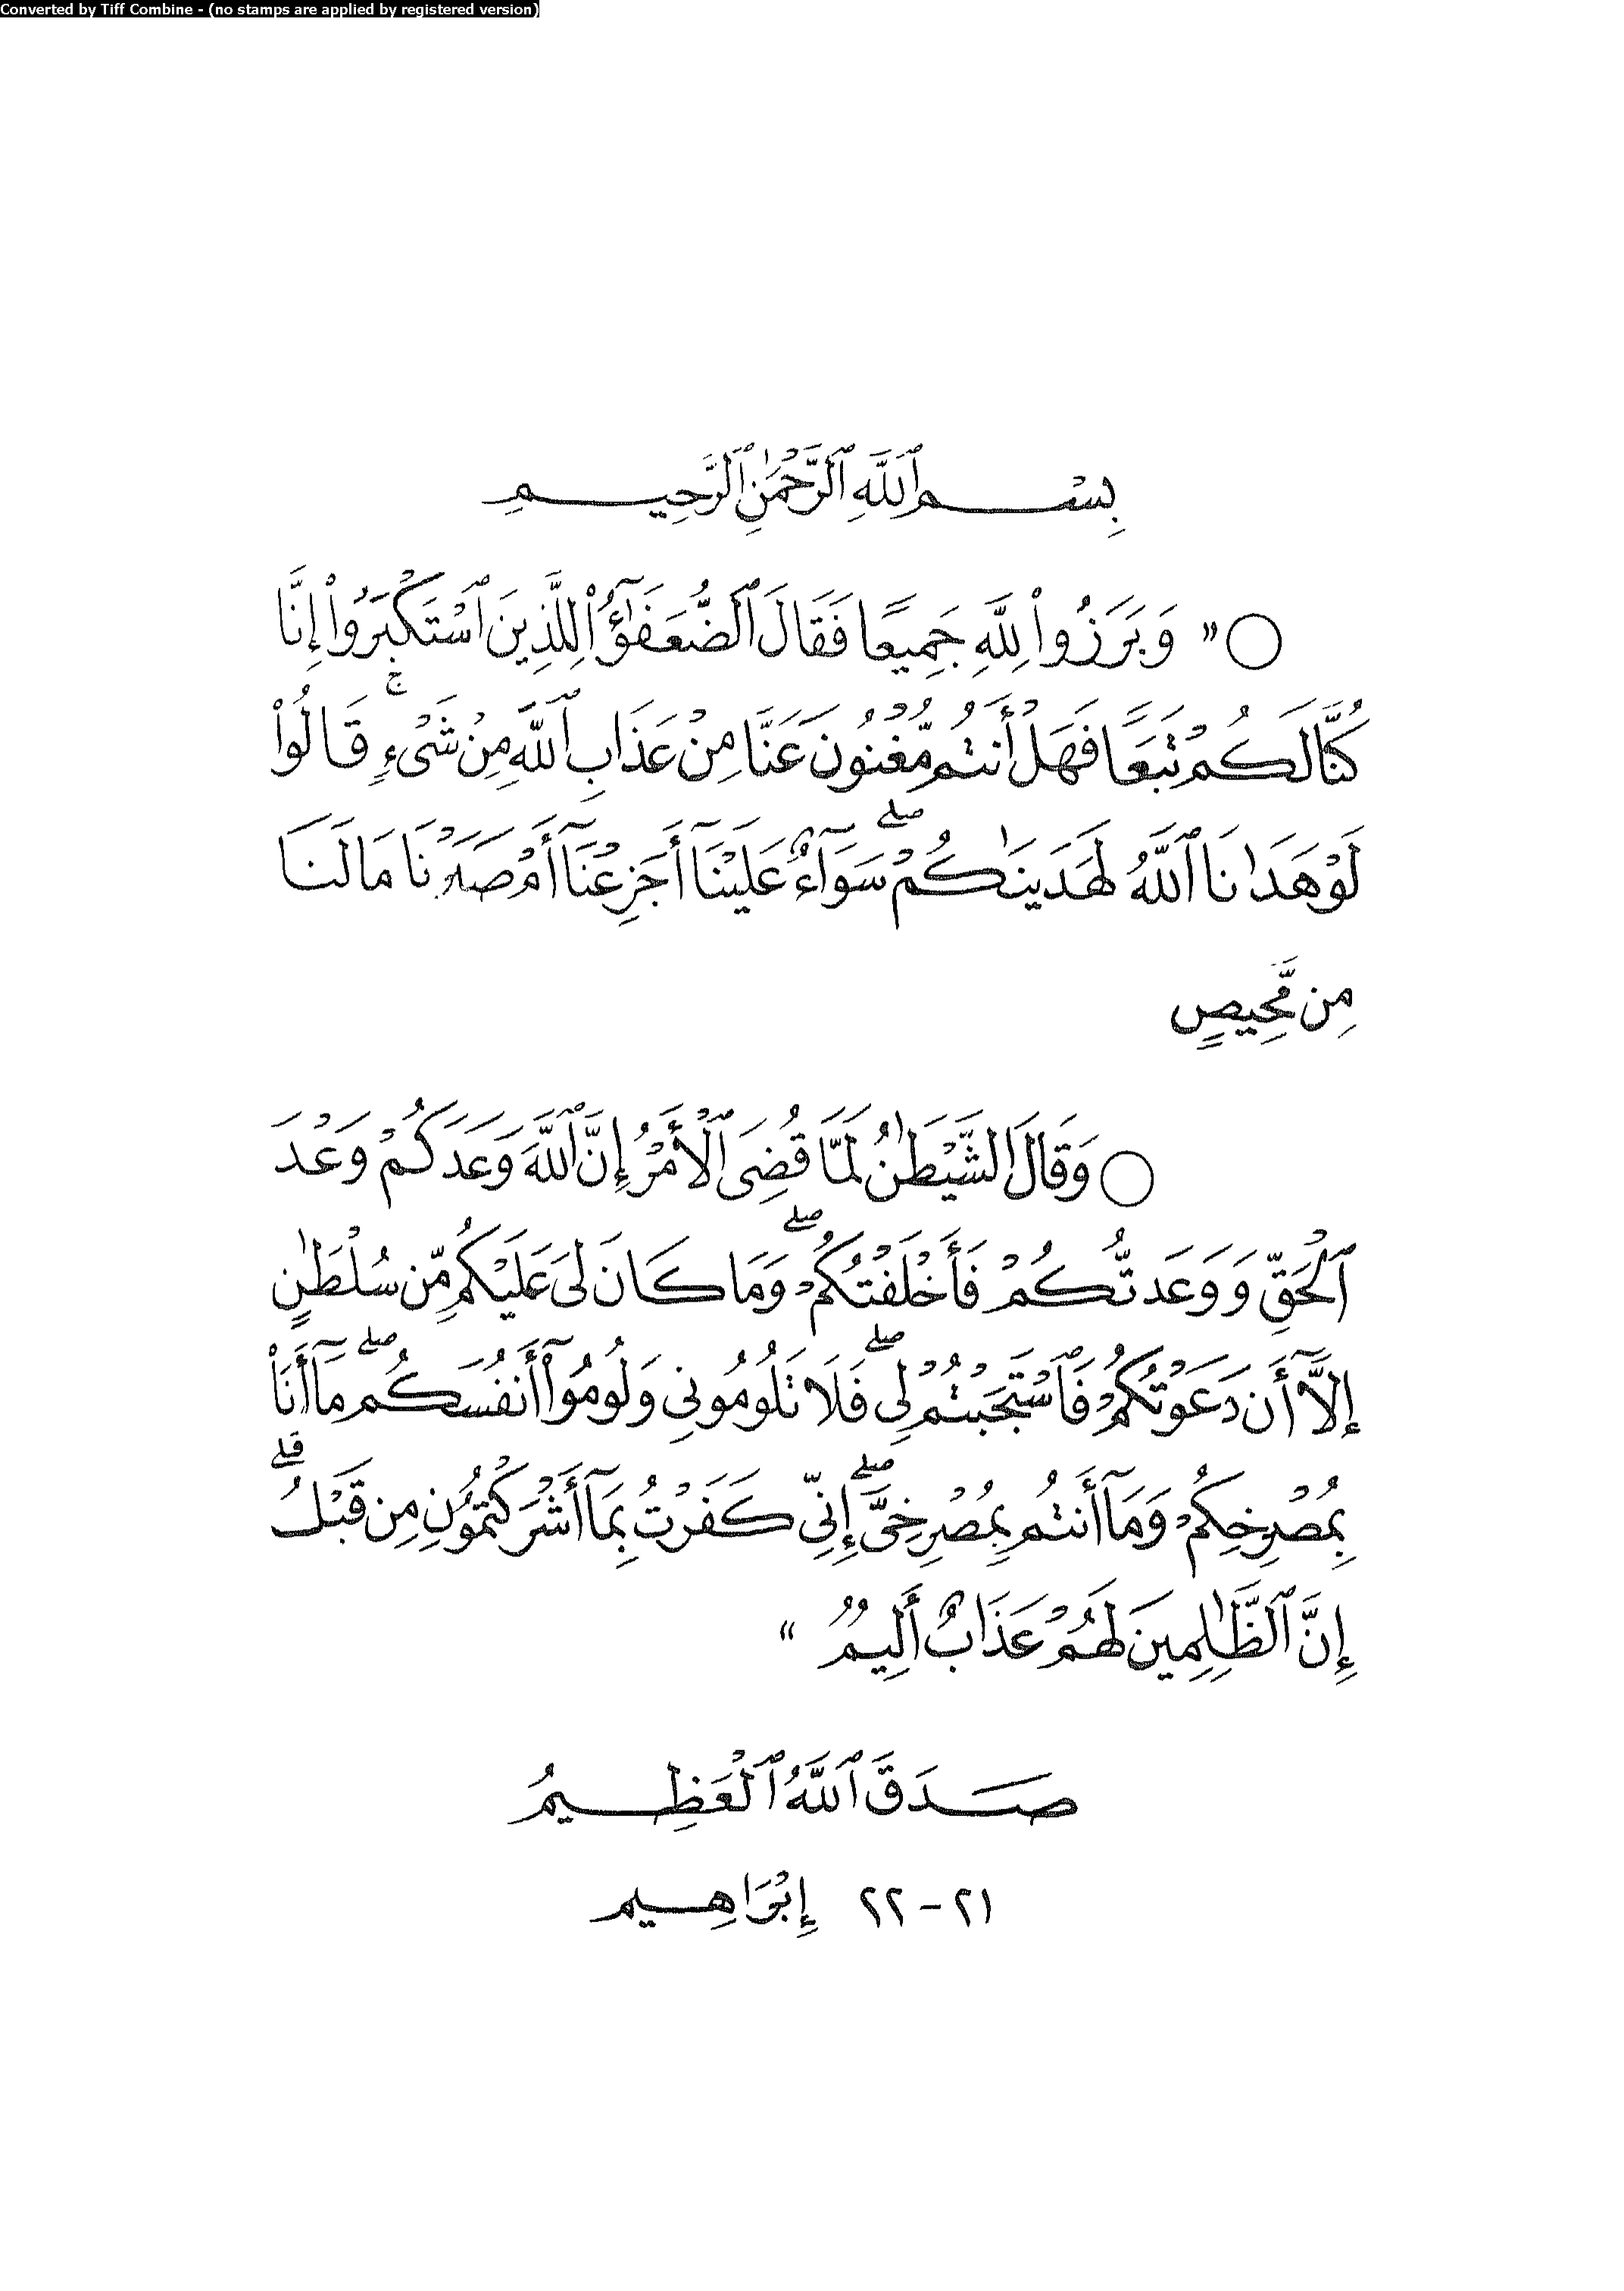 Converted by Tiff Combine - (no stamps are applied by registered version)
بِسْمِ ٱللَّهِ ٱلرَّحْمَٰنِ ٱلرَّحِيمِ
○ « وَبَرَزُوا۟ لِلَّهِ جَمِيعًا فَقَالَ ٱلضُّعَفَٰٓؤُا۟ لِلَّذِينَ ٱسْتَكْبَرُوٓا۟ إِنَّا
كُنَّا لَكُمْ تَبَعًا فَهَلْ أَنتُم مُّغْنُونَ عَنَّا مِنْ عَذَابِ ٱللَّهِ مِن شَىْءٍ ۚ قَالُوا۟
لَوْ هَدَىٰنَا ٱللَّهُ لَهَدَيْنَٰكُمْ ۖ سَوَآءٌ عَلَيْنَآ أَجَزِعْنَآ أَمْ صَبَرْنَا مَا لَنَا
مِن مَّحِيصٍ
○ وَقَالَ ٱلشَّيْطَٰنُ لَمَّا قُضِىَ ٱلْأَمْرُ إِنَّ ٱللَّهَ وَعَدَكُمْ وَعْدَ
ٱلْحَقِّ وَوَعَدتُّكُمْ فَأَخْلَفْتُكُمْ ۖ وَمَا كَانَ لِىَ عَلَيْكُم مِّن سُلْطَٰنٍ
إِلَّآ أَن دَعَوْتُكُمْ فَٱسْتَجَبْتُمْ لِى ۖ فَلَا تَلُومُونِى وَلُومُوٓا۟ أَنفُسَكُم ۖ مَّآ أَنَا۠
بِمُصْرِخِكُمْ وَمَآ أَنتُم بِمُصْرِخِىَّ ۖ إِنِّى كَفَرْتُ بِمَآ أَشْرَكْتُمُونِ مِن قَبْلُ ۗ
إِنَّ ٱلظَّٰلِمِينَ لَهُمْ عَذَابٌ أَلِيمٌ »
صَدَقَ ٱللَّهُ ٱلْعَظِيمُ
٢١ - ٢٢ إِبْرَاهِيم